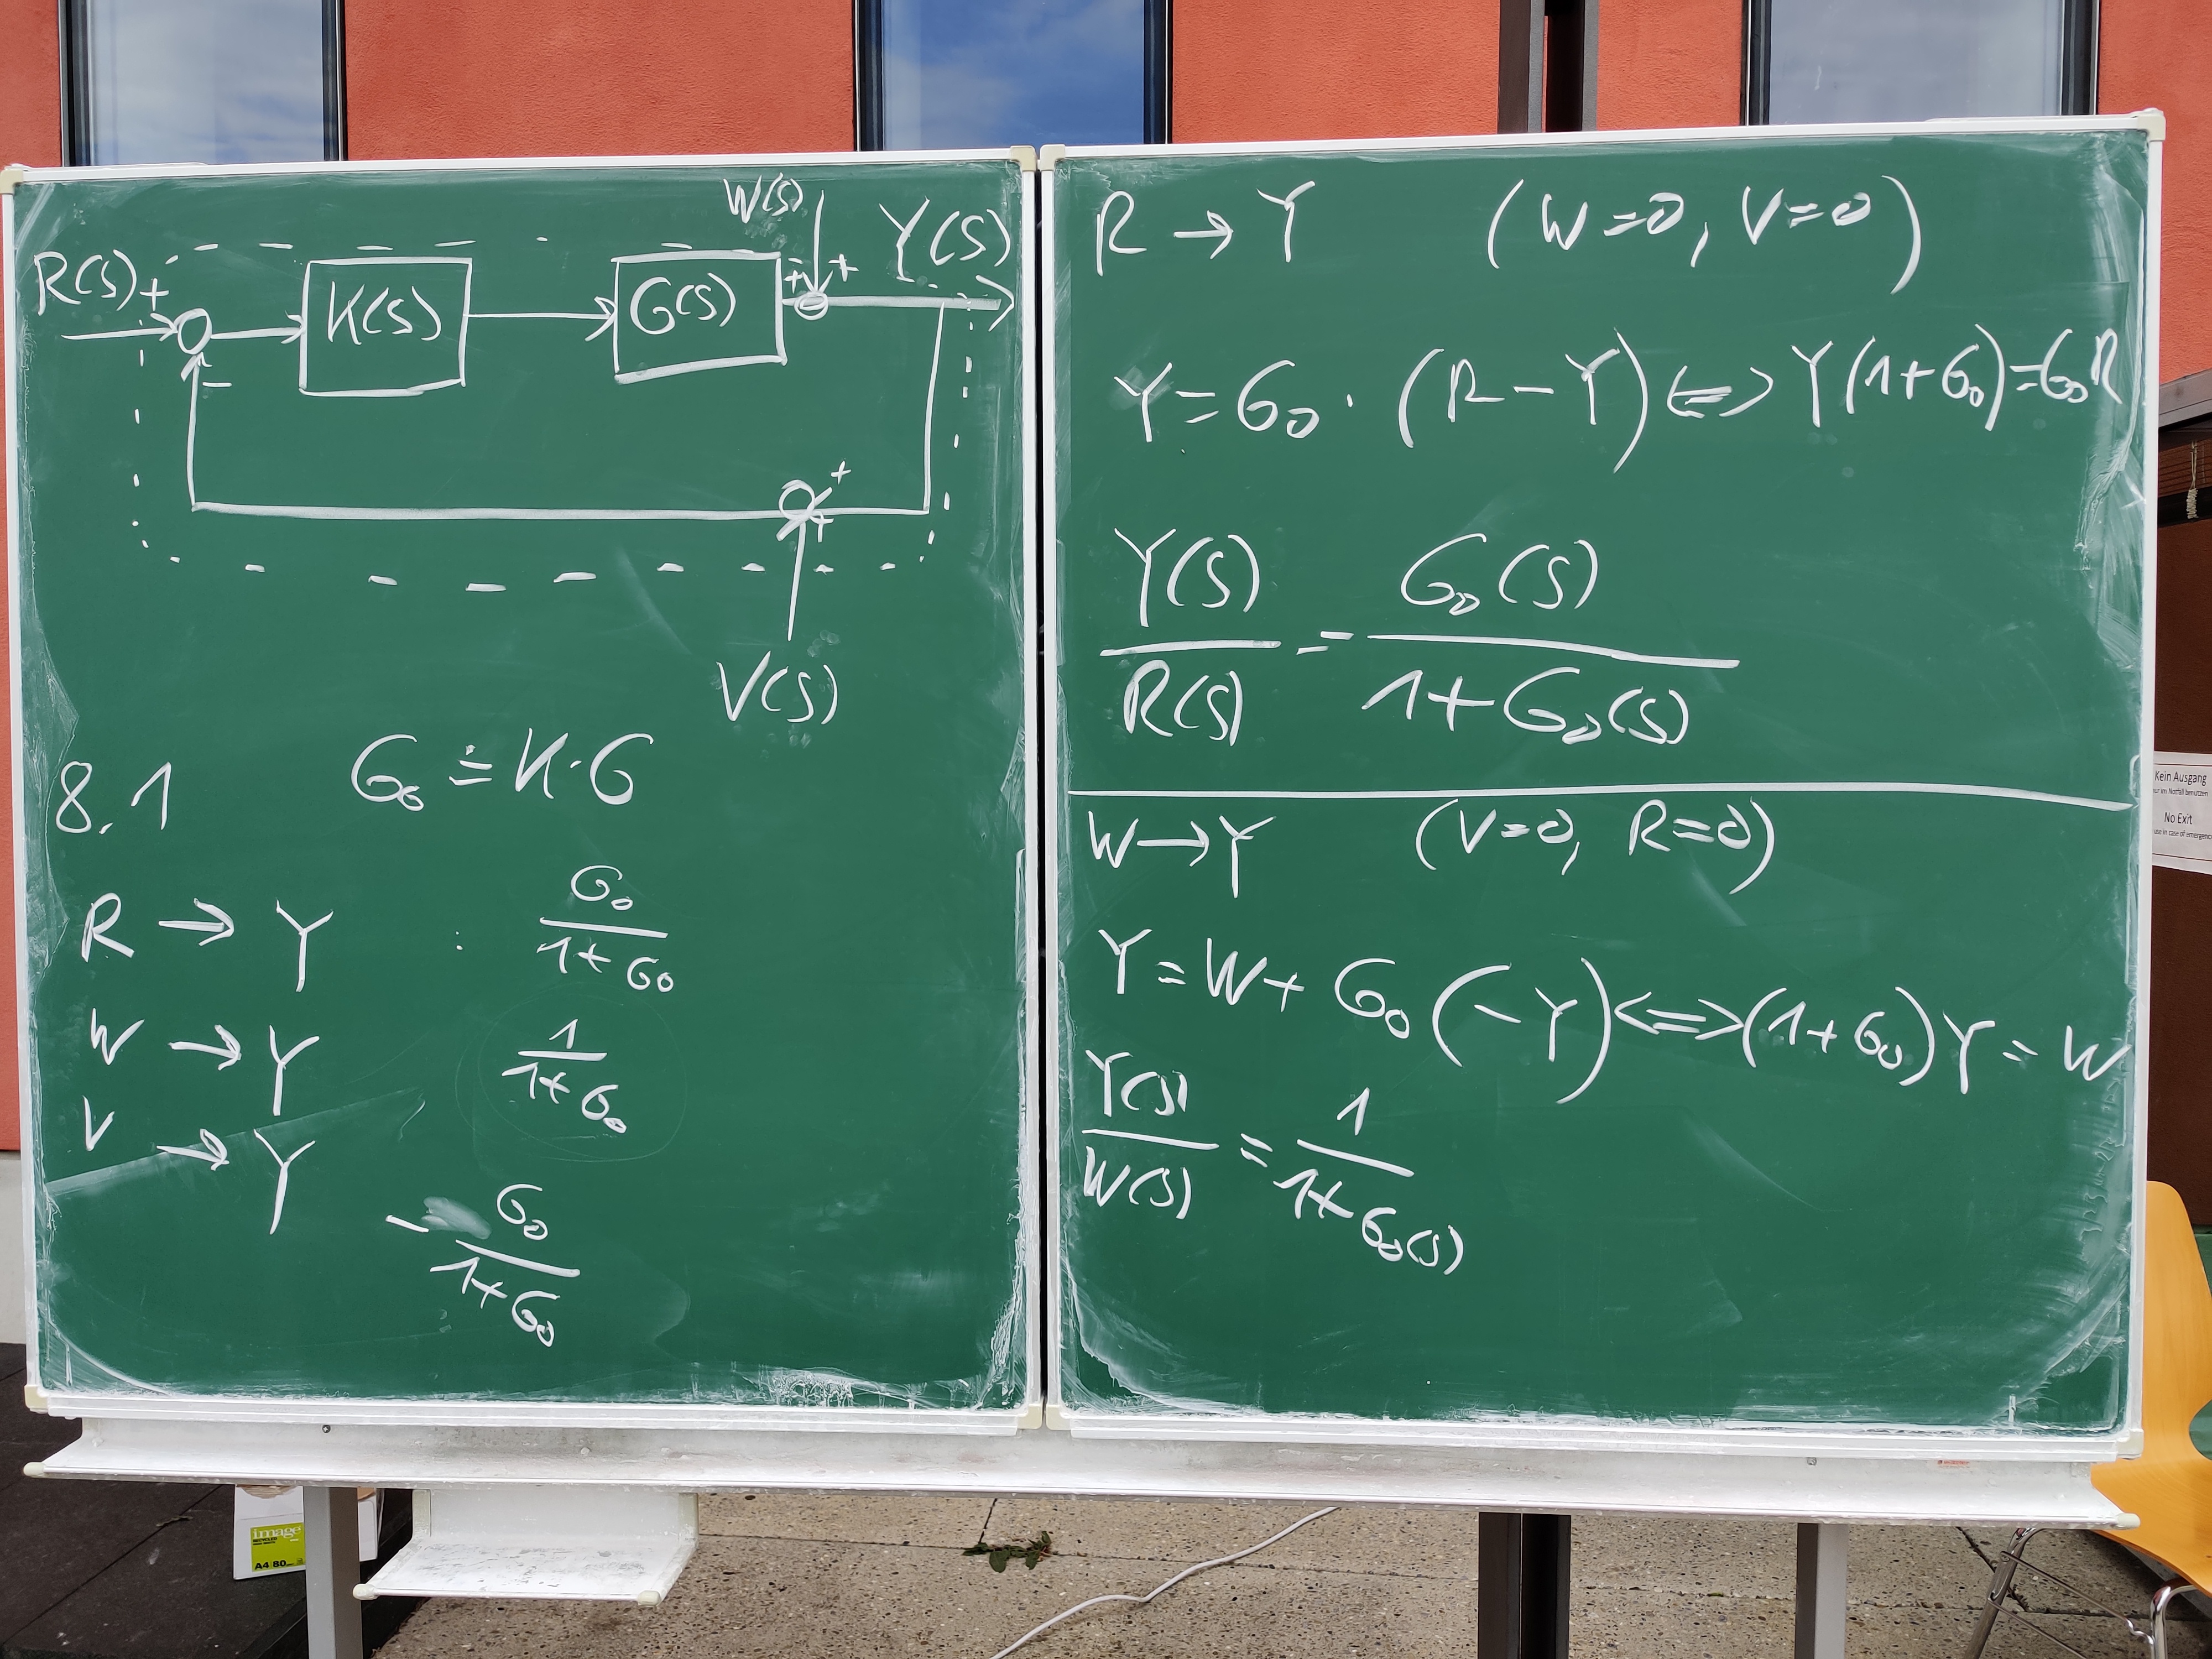 R(s)
+
K(s)
G(s)
W(s)
+ +
Y(s)
−
+
+
V(s)
8.1
G₀ ≐ K·G
R → Y : G₀ / 1+G₀
W → Y 1 / 1+G₀
V → Y − G₀ / 1+G₀
R → Y (W=0, V=0)
Y = G₀ · (R − Y) ⇔ Y(1+G₀)=G₀R
Y(s) / R(s) = G₀(s) / 1+G₀(s)
W → Y (V=0, R=0)
Y = W + G₀(−Y) ⇔ (1+G₀)Y = W
Y(s) / W(s) = 1 / 1+G₀(s)
Kein Ausgang
nur im Notfall benutzen
No Exit
use in case of emergency
image
A4 80